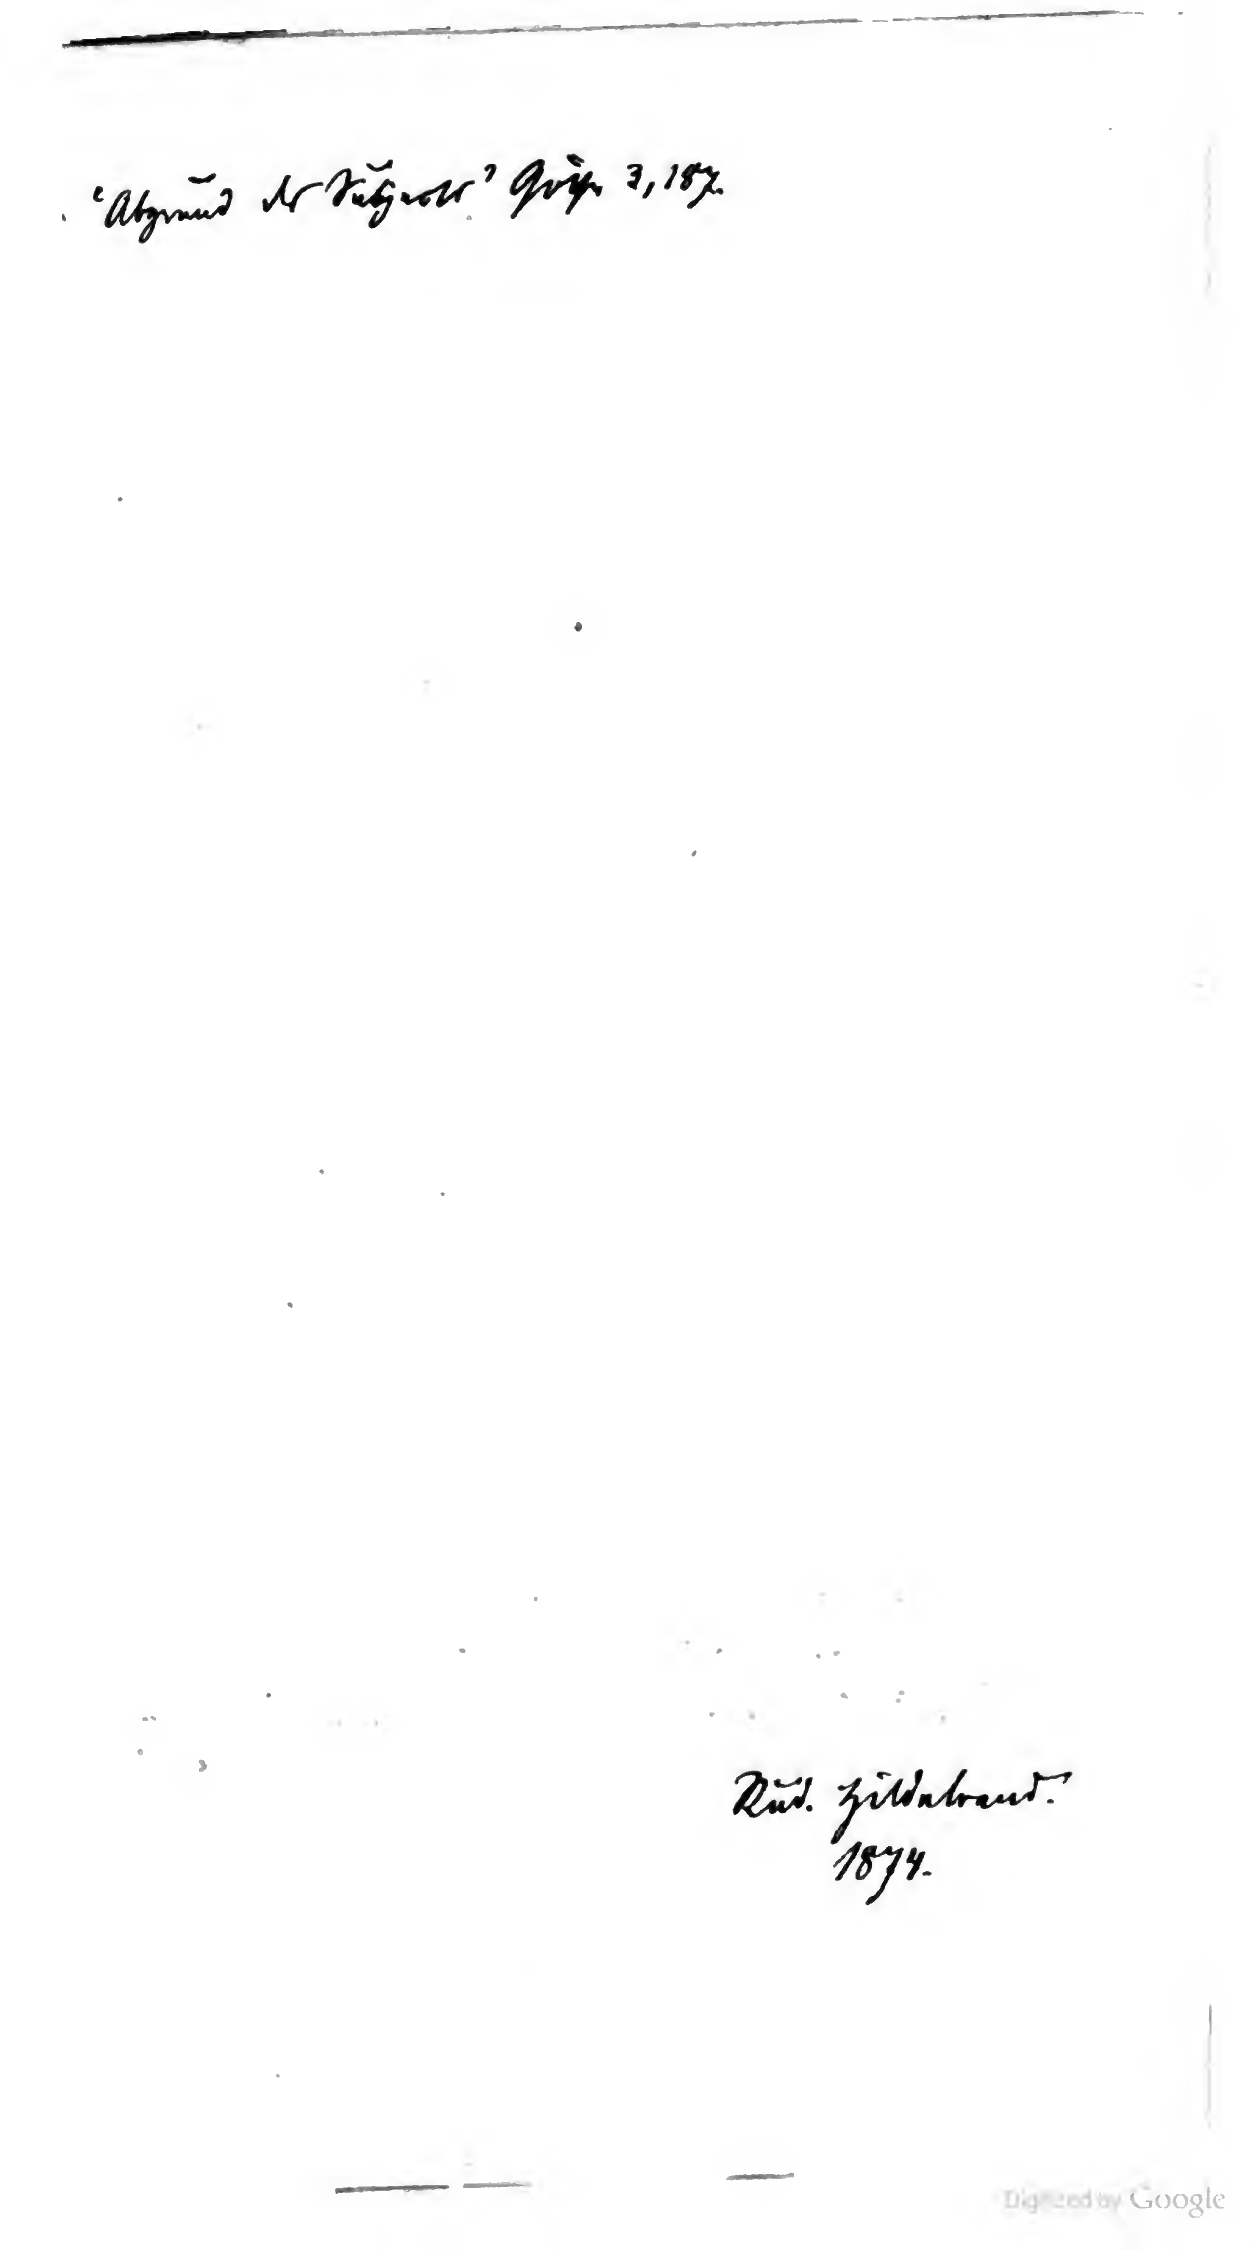 'Abgrund der Subjects' 3, 187.
Rud. Hildebrand.
1874.
Digitized by Google